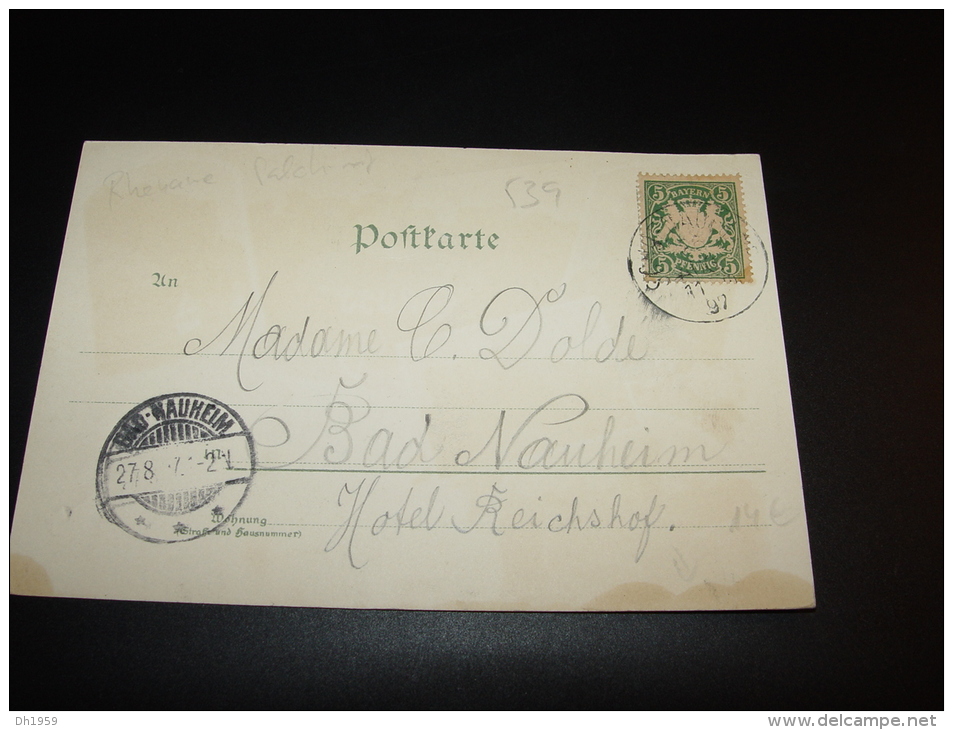 Rhenane
539
5 BAYERN 5
5 PFENNIG 5
97
Postkarte
An
Madame C. Dolde
Bad Nauheim
BAD-NAUHEIM
27.8
Wohnung
(Straße und Hausnummer)
Hotel Reichshof.
14€
DH1959
www.delcampe.net